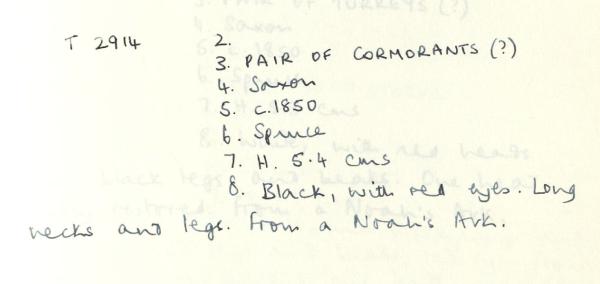 T 2914 2.
3. PAIR OF CORMORANTS (?)
4. Saxon
5. c.1850
6. Spruce
7. H. 5.4 cms
8. Black, with red eyes. Long
necks and legs. From a Noah's Ark.